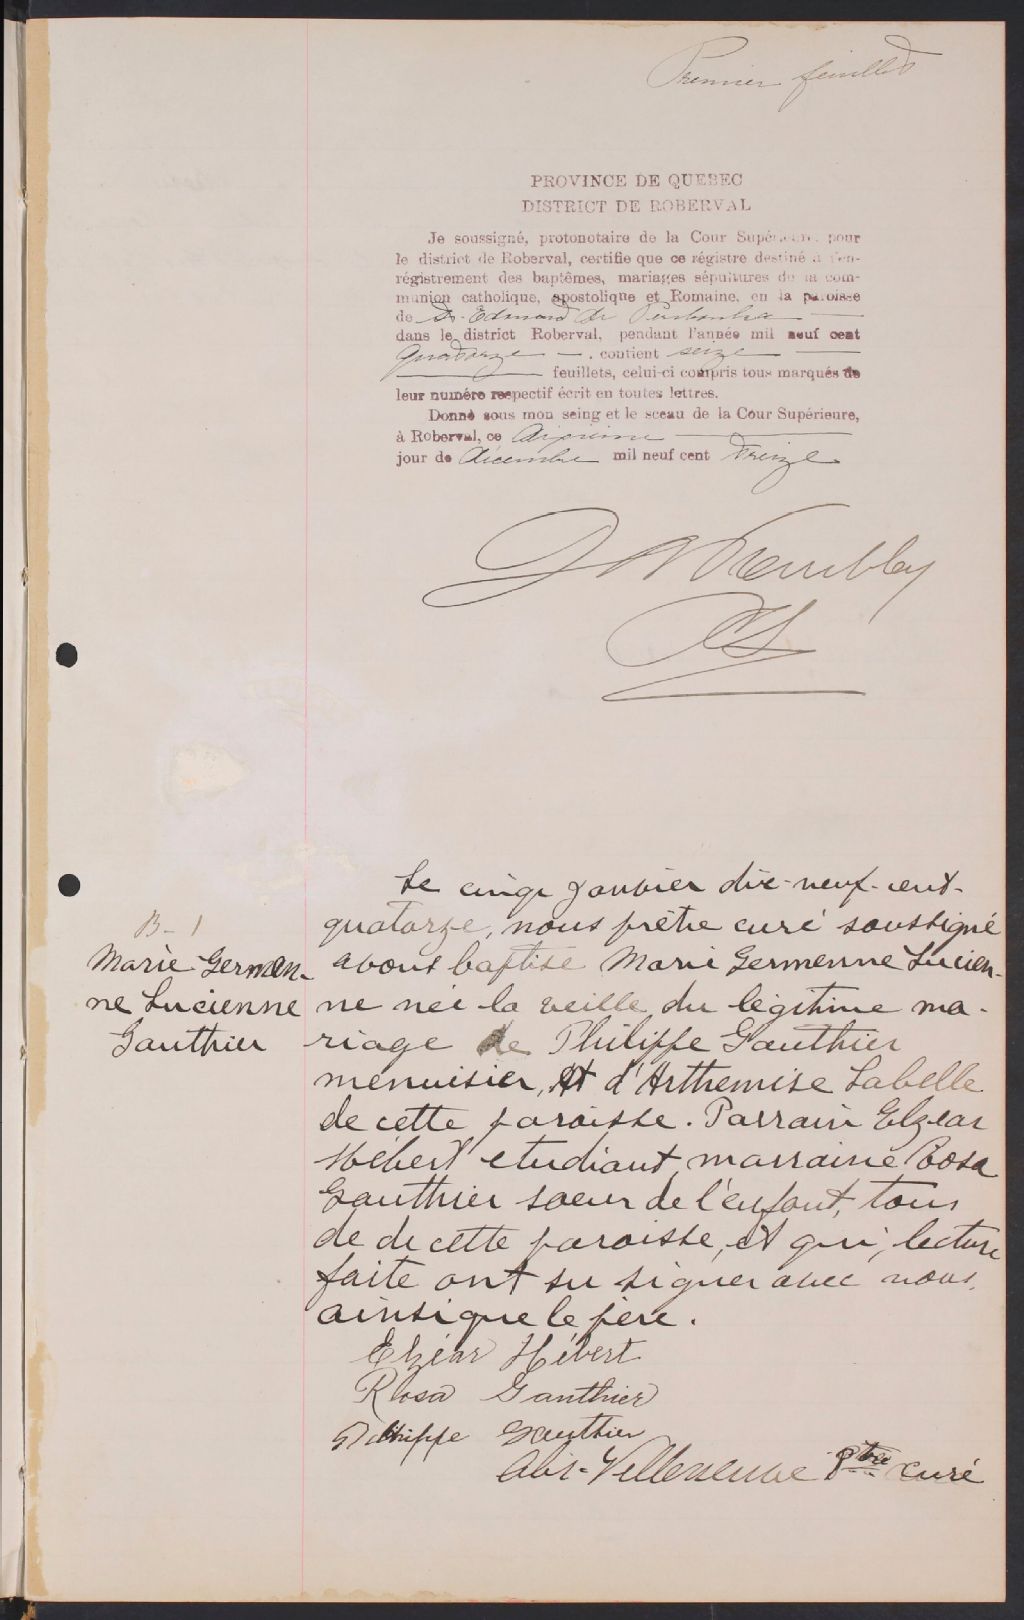 Premier feuillet
PROVINCE DE QUEBEC
DISTRICT DE ROBERVAL
Je soussigné, protonotaire de la Cour Supérieure pour
le district de Roberval, certifie que ce régistre destiné à l'en-
régistrement des baptêmes, mariages sépultures de la com-
munion catholique, apostolique et Romaine, en la paroisse
de St. Edmond de
dans le district Roberval, pendant l'année mil neuf cent
quatorze, contient seize
feuillets, celui-ci compris tous marqués de
leur numéro respectif écrit en toutes lettres.
Donné sous mon seing et le sceau de la Cour Supérieure,
à Roberval, ce
jour de décembre mil neuf cent treize
Tremblay
Le cinq janvier dix-neuf-cent-
B-1
quatorze, nous prêtre curé soussigné
Marie Germen-
avons baptise Marie Germenne Lucien-
ne Lucienne
ne née la veille du légitime ma-
Gauthier
riage de Philippe Gauthier
menuisier, et d'Arthemise Labelle
de cette paroisse. Parrain Elzéar
Hébert etudiant, marraine Rosa
Gauthier soeur de l'enfant, tous
de de cette paroisse, et qui, lecture
faite ont su signer avec nous,
ainsi que le père.
Elzéar Hébert
Rosa Gauthier
Philippe Gauthier
Villeneuve Ptre curé